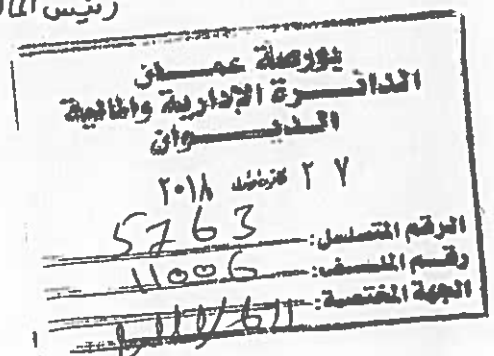 رئيس
بورصة عمان
الدائرة الإدارية والمالية
الديوان
٢٧ ٢٠١٨
الرقم المتسلسل: 5763
رقم الملف: 11006
الجهة المختصة: